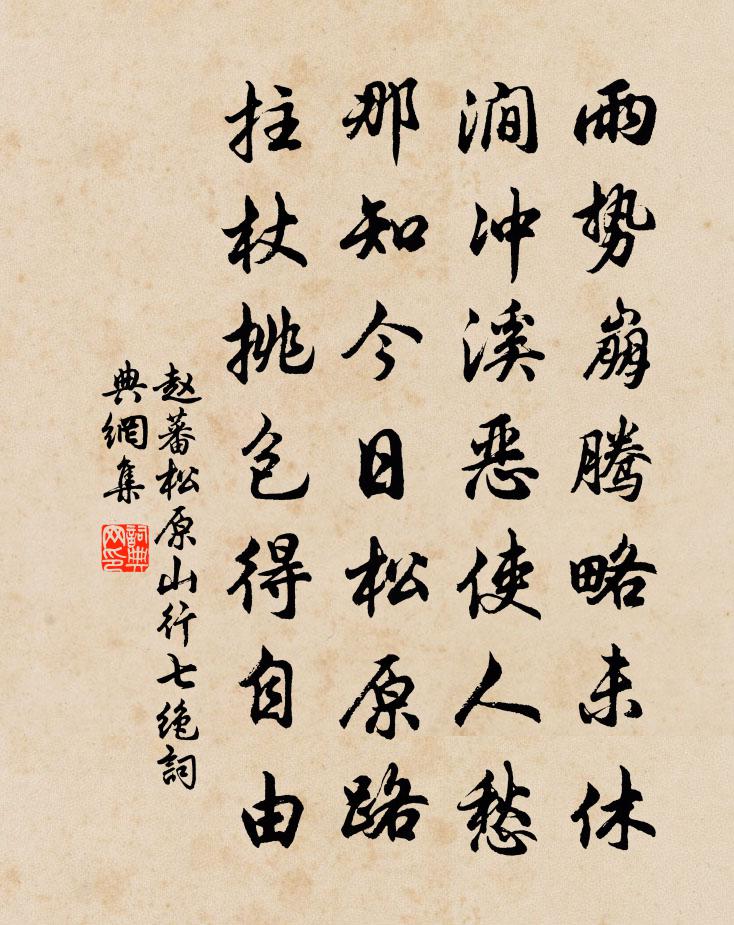 雨势崩腾略未休
涧冲溪恶使人愁
那知今日松原路
拄杖挑包得自由
赵蕃松原山行七绝詞
典網集
詞典网印